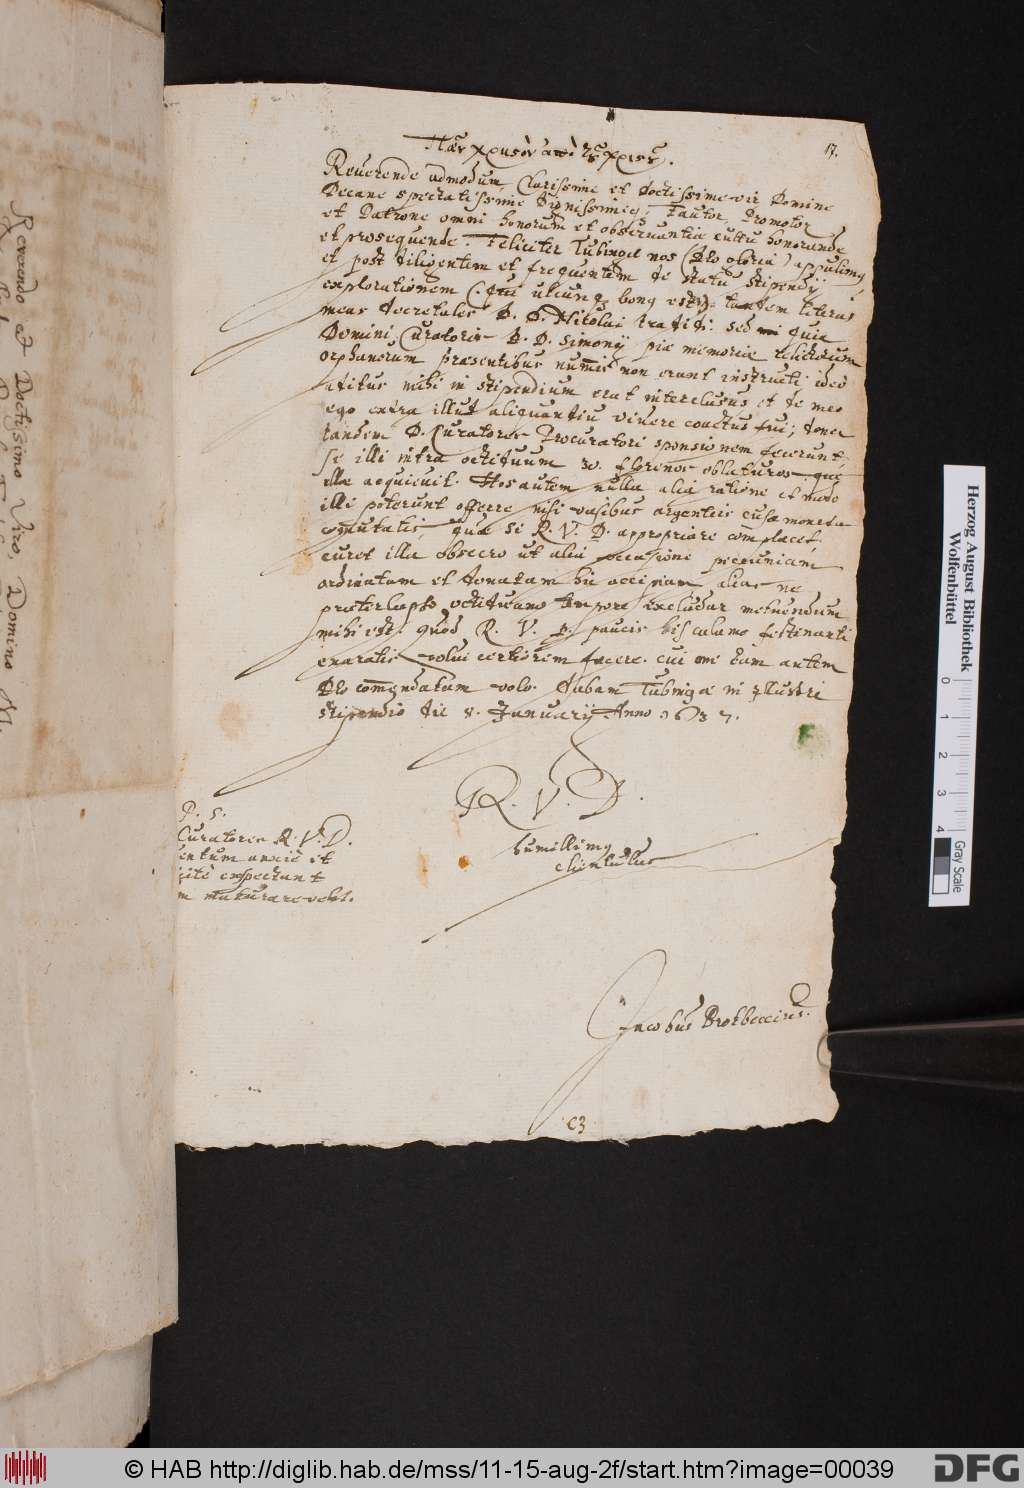 17.
Πᾶν χρυσὸν ἀπὸ τοῦ χριστοῦ.
Reverende admodum, Clarissime et doctissime vir Domine
Decane spectatissime dignissimeq; Fautor, Promotor
et Patrone omni honorum et observantiae cultu honorande
et prosequende. Feliciter Tubingae nos (Deo gloria) appulimq;
et post diligentem et frequentem de statu stipendij
explorationem (qui utcunq; bonq est) tandem literas
meas decretales D. D. Nikolai tradidi: sed quia
Domini Curatores D. D. Simonij piae memoriae relictorum
orphanorum praesentibus num̄is non erant instructi ideo
aditus mihi in stipendium erat interclusus et de meo
ego extra illud aliquandiu vivere coactus fui; donec
tandem D. Curatores Procuratori sponsionem fecerunt
se illi intra octiduum 30. florenos oblaturos qui
illae acquievit. Hos autem nulla alia ratione et modo
illi poterunt offerre nisi vasibus argenteis cusa moneta
com̄utatis, quae si R. V. D. appropriare complacet
curet illa obsecro ut alia occasione pecuniam
ordinatam et donatam hic accipiam alias ne
praeterlapso octiduano tempore excludar metuendum
mihi est. quod R. V. D. paucis his calamo festinanti
exaratis volui certiorem facere. cui me tam autem
Deo com̄endatam volo. dabam Tubingae in Illustri
stipendio die 8. Januarij Anno 1637.
R. V. D.
humillimq
clientulus
P. S.
Curatores R. V. D.
entum anxiè et
citè expectant
m maturare velit.
Jacobus Brotbeccius.
C3
Reverendo et Doctissimo Viro, Domino M.
Herzog August Bibliothek
Wolfenbüttel
0 1 2 3 4
Gray Scale
© HAB http://diglib.hab.de/mss/11-15-aug-2f/start.htm?image=00039
DFG